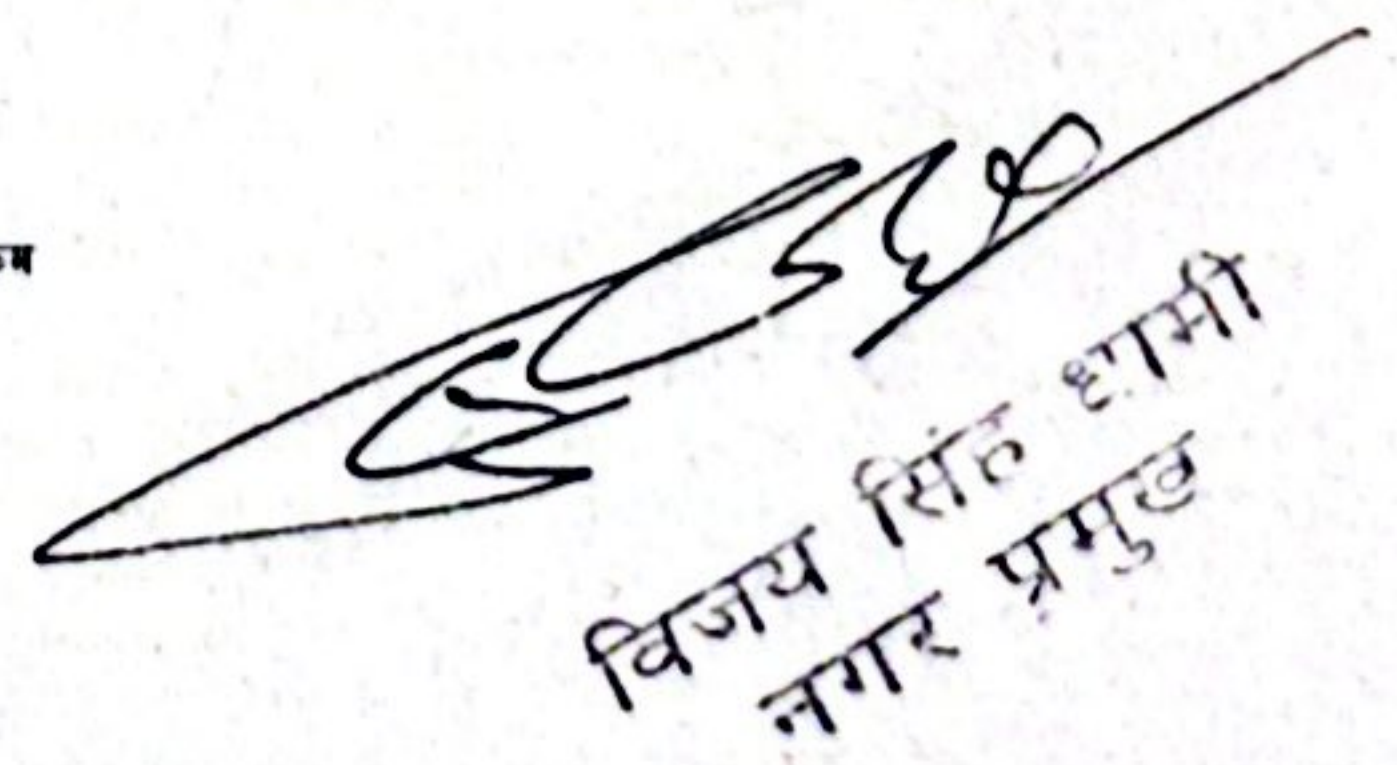 विजय सिंह धामी
नगर प्रमुख